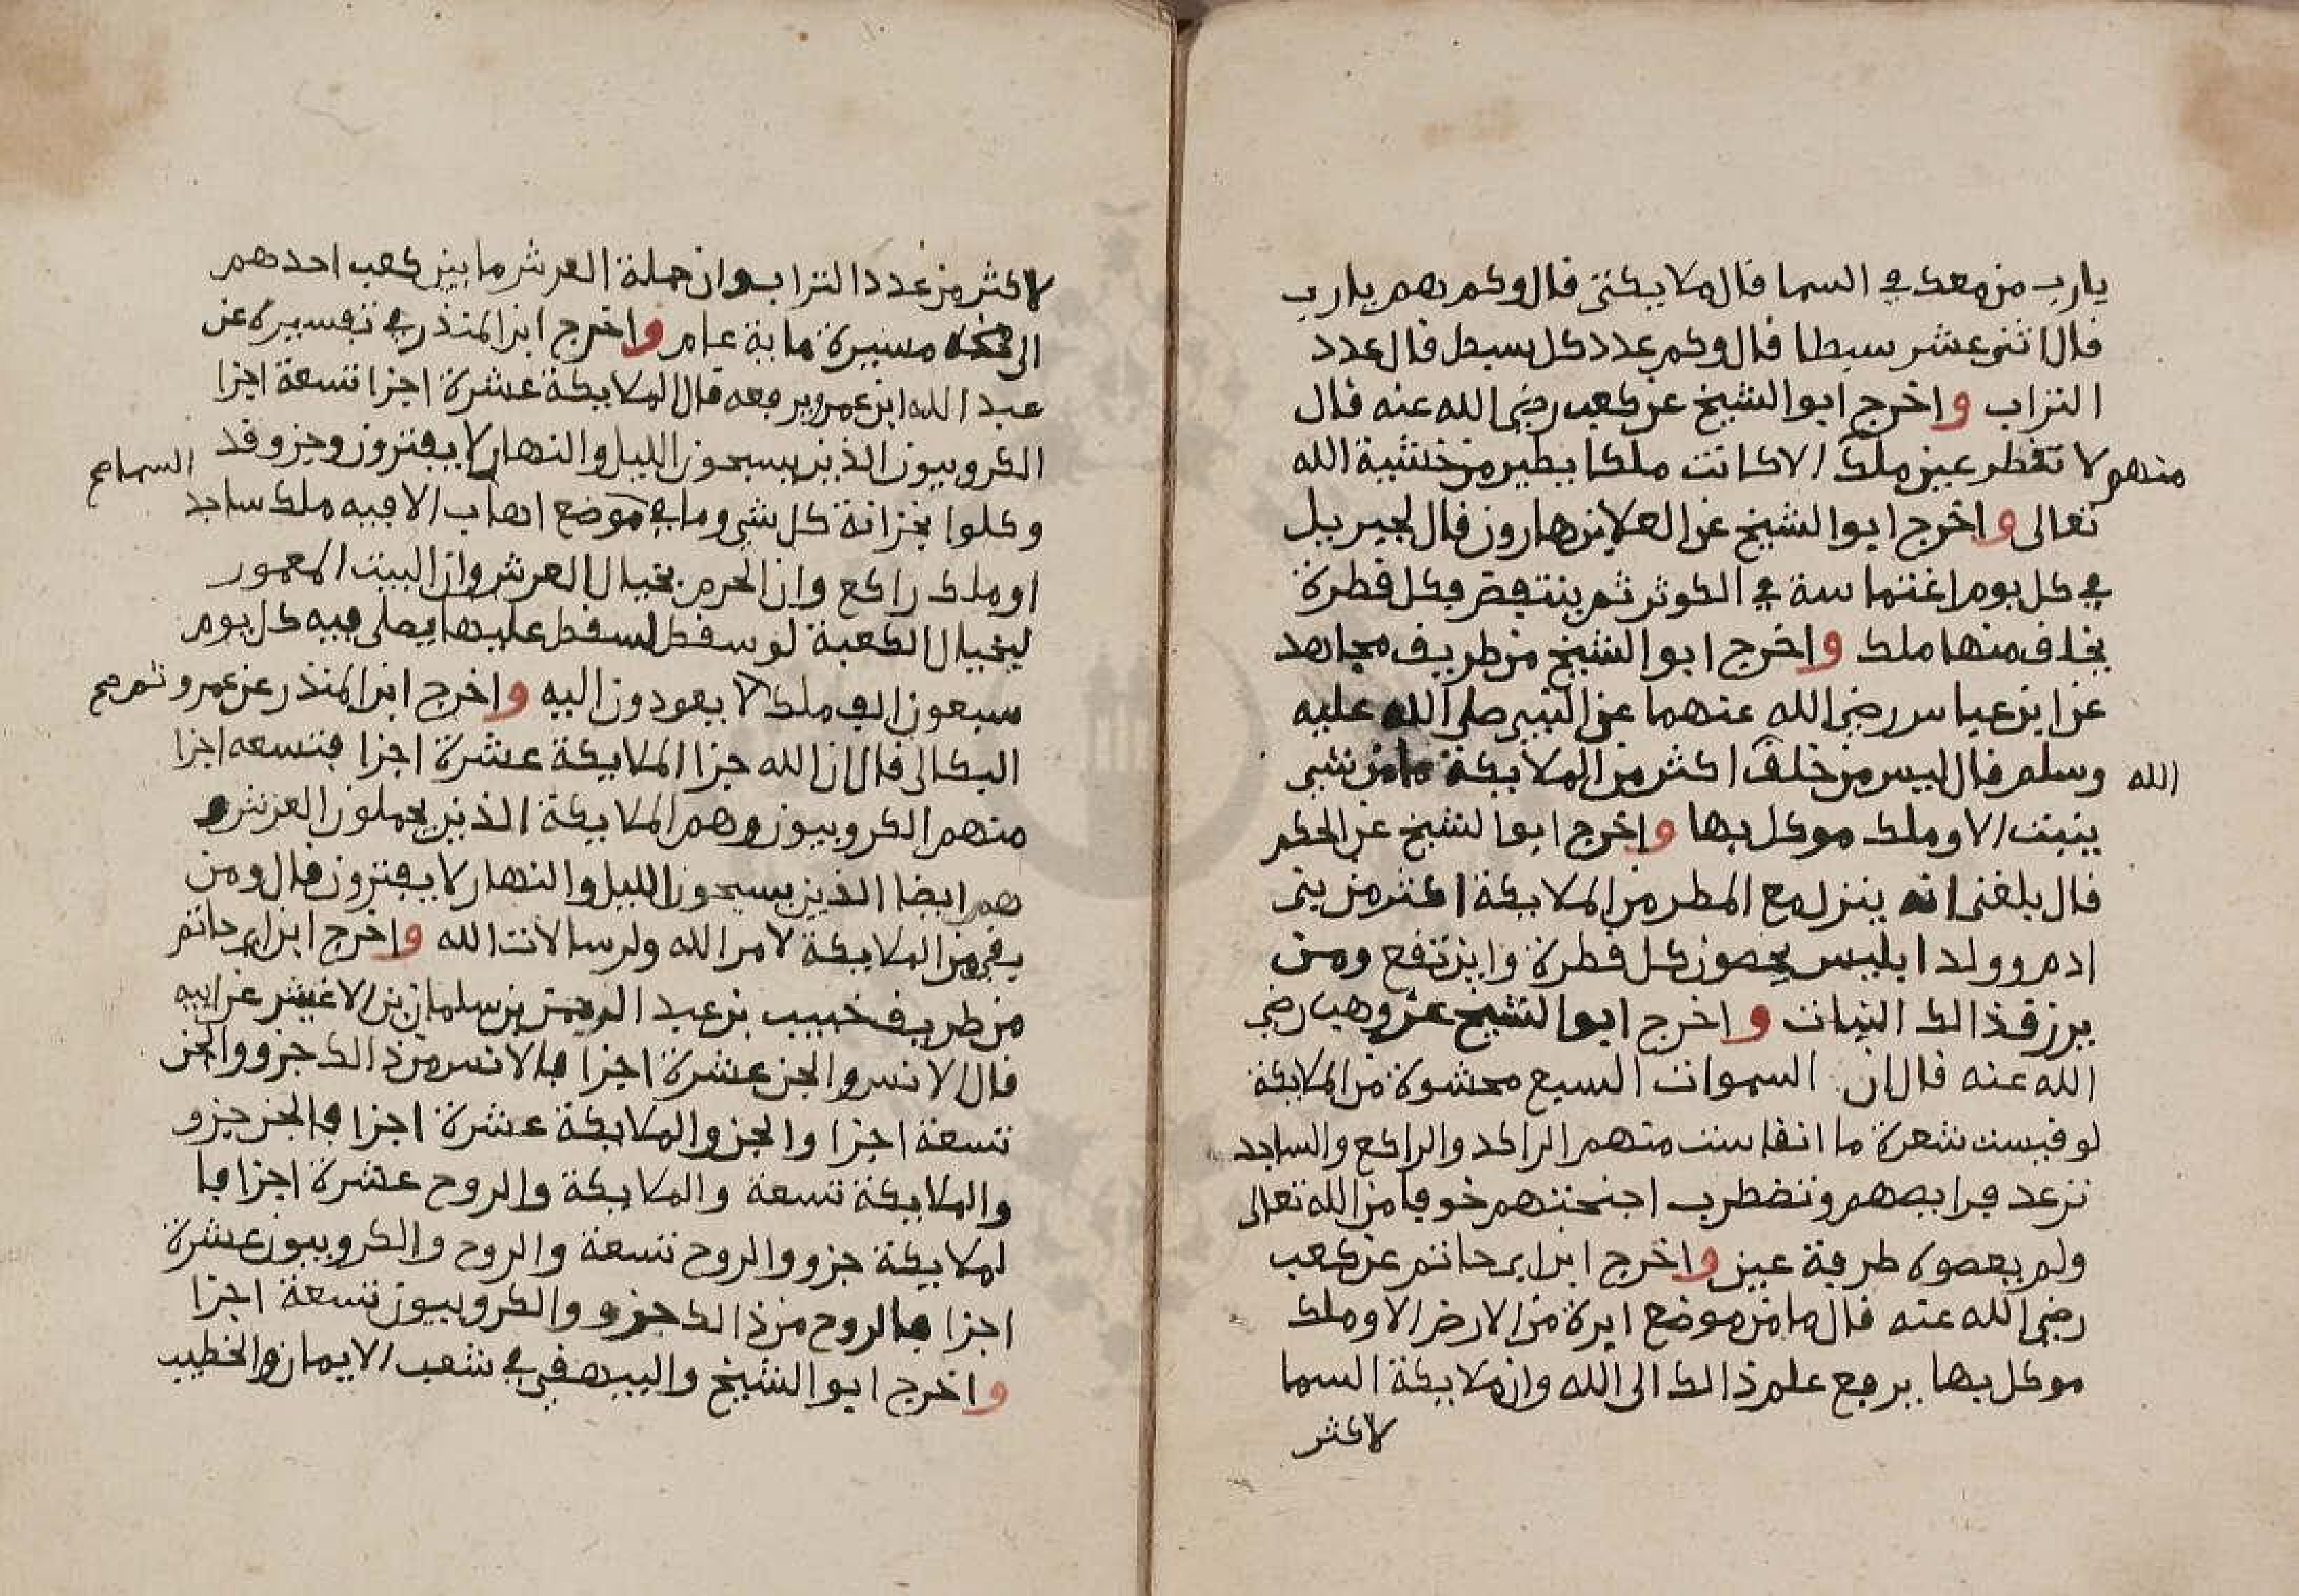 يارب من معك في السما قال ملايكتي قال وكم هم يارب
قال اثني عشر سبطا قال وكم عدد كل سبط قال عدد
التراب واخرج ابوا الشيخ عن كعب رضي الله عنه قال
لا تقطر عين ملك الا كانت ملكا يطير من خشية الله
منهم
تعالى واخرج ابوا الشيخ عن العلا بن هارون قال لجبريل
في كل يوم اغتماسة في الكوثر ثم ينتفض فكل قطرة
يخلق منها ملك واخرج ابوا الشيخ من طريق مجاهد
عن ابن عباس رضي الله عنهما عن النبي صلى الله عليه
وسلم قال ليس من خلق اكثر من الملايكة ما من شي
الله
ينبت الا وملك موكل بها واخرج ابوا الشيخ عن الحكم
قال بلغني انه ينزل مع المطر من الملايكة اكثر من بني
ادم وولد ابليس يحصون كل قطرة واين تقع ومن
يرزق ذالك النبات واخرج ابوا الشيخ عن وهب رضي
الله عنه قال ان السموات السبع محشوة من الملايكة
لو قيست شعرة ما انقاست منهم الراكد والراكع والساجد
ترعد فرايصهم وتضطرب اجنحتهم خوفا من الله تعالى
ولم يعصوه طرفة عين واخرج ابن ابي حاتم عن كعب
رضي الله عنه قال ما من موضع ابرة من الارض الا وملك
موكل بها يرفع علم ذالك الى الله وان ملايكة السما
لاكثر
لاكثر من عدد التراب وان حملة العرش ما بين كعب احدهم
الى مخه مسيرة ماية عام واخرج ابن المنذر في تفسيره عن
عبد الله ابن عمرو يرفعه قال الملايكة عشرة اجزا تسعة اجزا
الكروبيون الذين يسبحون الليل والنهار لا يفترون وجزو قد
وكلوا بخزانة كل شي وما في موضع اهاب الا فيه ملك ساجد
السما صح
او ملك راكع وان الحرم بخيال العرش وان البيت المعمور
لبخيال الكعبة لو سقط لسقط عليها يصلي فيه كل يوم
سبعون الف ملك لا يعودون اليه واخرج ابن المنذر عن عمرو
ثم صح
البكالي قال ان الله جزا الملايكة عشرة اجزا فتسعه اجزا
منهم الكروبيون وهم الملايكة الذين يحملون العرش و
هم ايضا الذين يسبحون الليل والنهار لا يفترون قال ومن
بقي من الملايكة لامر الله ولرسالات الله واخرج ابن ابي حاتم
من طريق خبيب بن عبد الرحمن بن سلمان بن الاعيش عن ابيه
قال الانس والجن عشرة اجزا فالانس من ذالك جزو والجن
تسعة اجزا والجن والملايكة عشرة اجزا فالجن جزو
والملايكة تسعة والملايكة والروح عشرة اجزا فا
لملايكة جزو والروح تسعة والروح والكروبيون عشرة
اجزا فالروح من ذالك جزو والكروبيون تسعة اجزا
واخرج ابوا الشيخ والبيهقي في شعب الايمان والخطيب